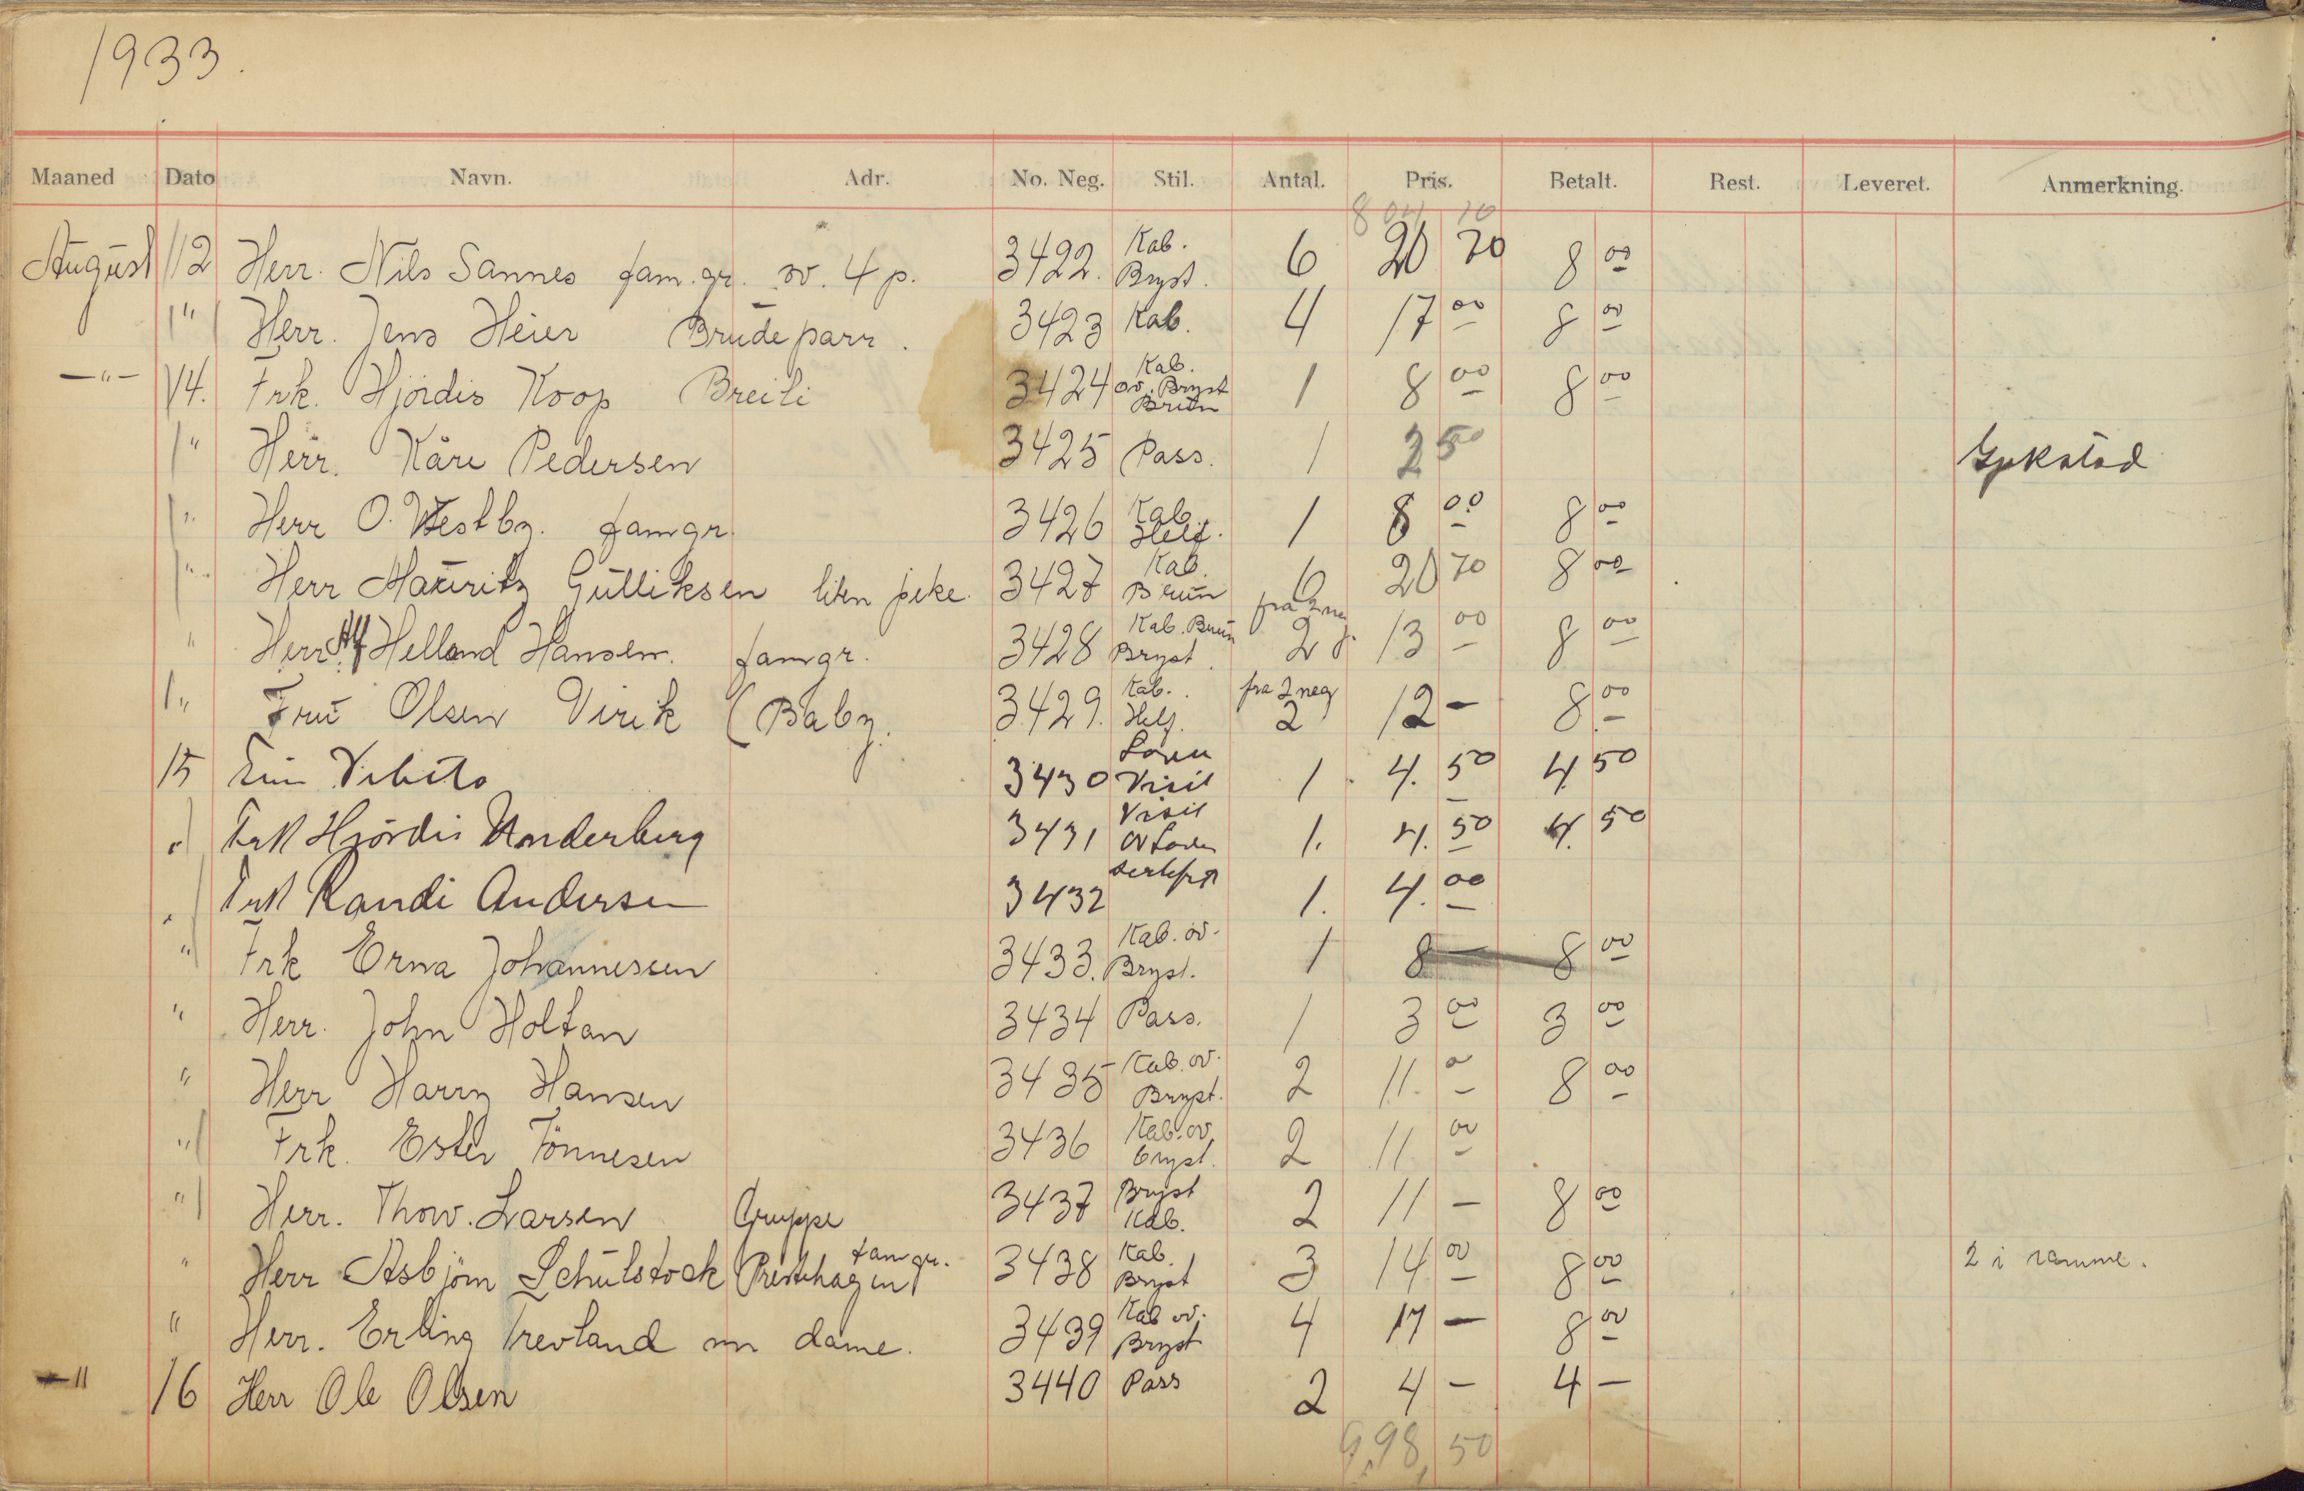 1933.
Maaned Dato Navn. Adr. No. Neg. Stil. Antal. Pris. Betalt. Rest. Leveret. Anmerkning.
8 04 10
August 12 Herr. Nils Sannes fam.gr. ov. 4 p. 3422. Kab. Bryst. 6 20 70 8 00
" Herr. Jens Heier Brudeparr. 3423 Kab. 4 17 00 8 00
—"— 14. Frk. Hjördis Koop Breili 3424 Kab. ov. Bryst Brun 1 8 00 8 00
" Herr. Kåre Pedersen 3425 Pass. 1 2 50
" Herr O. Westby. famgr. 3426 Kab. Helf. 1 8 00 8 00
" Herr Mauritz Gulliksen liten pike. 3427 Kab. Brun 6 20 70 8 00
" Herr Alf Helland Hansen. famgr. 3428 Kab. Brun Bryst. fra 2 neg. 2 13 00 8 00
" Fru Olsen Virik (Baby. 3429. Kab. Helf. fra 2 neg 2 12 — 8 00
15 3430 Visit 1 4. 50 4 50
" Frk Hjördis Unnderberg 3431 Visit ov 1. 4. 50 4. 50
" Frk Randi Andersen 3432 1. 4. 00
" Frk Erna Johannessen 3433. Kab. ov. Bryst. 1 8 — 8 00
" Herr. John Holtan 3434 Pass. 1 3 00 3 00
" Herr Harry Hansen 3435 Kab. ov. Bryst. 2 11. 00 8 00
" Frk. Ester Tönnesen 3436 Kab. ov. bryst. 2 11 00
" Herr. Thorv. Larsen Gruppe 3437 Bryst Kab. 2 11 — 8 00
" Herr Asbjörn Schulstock Prestehagen famgr. 3438 Kab. Bryst 3 14 00 8 00 2 i ramme.
" Herr. Erling Trevland m dame. 3439 Kab ov. Bryst 4 17 — 8 00
— " 16 Herr Ole Olsen 3440 Pass 2 4 — 4 —
9,98, 50